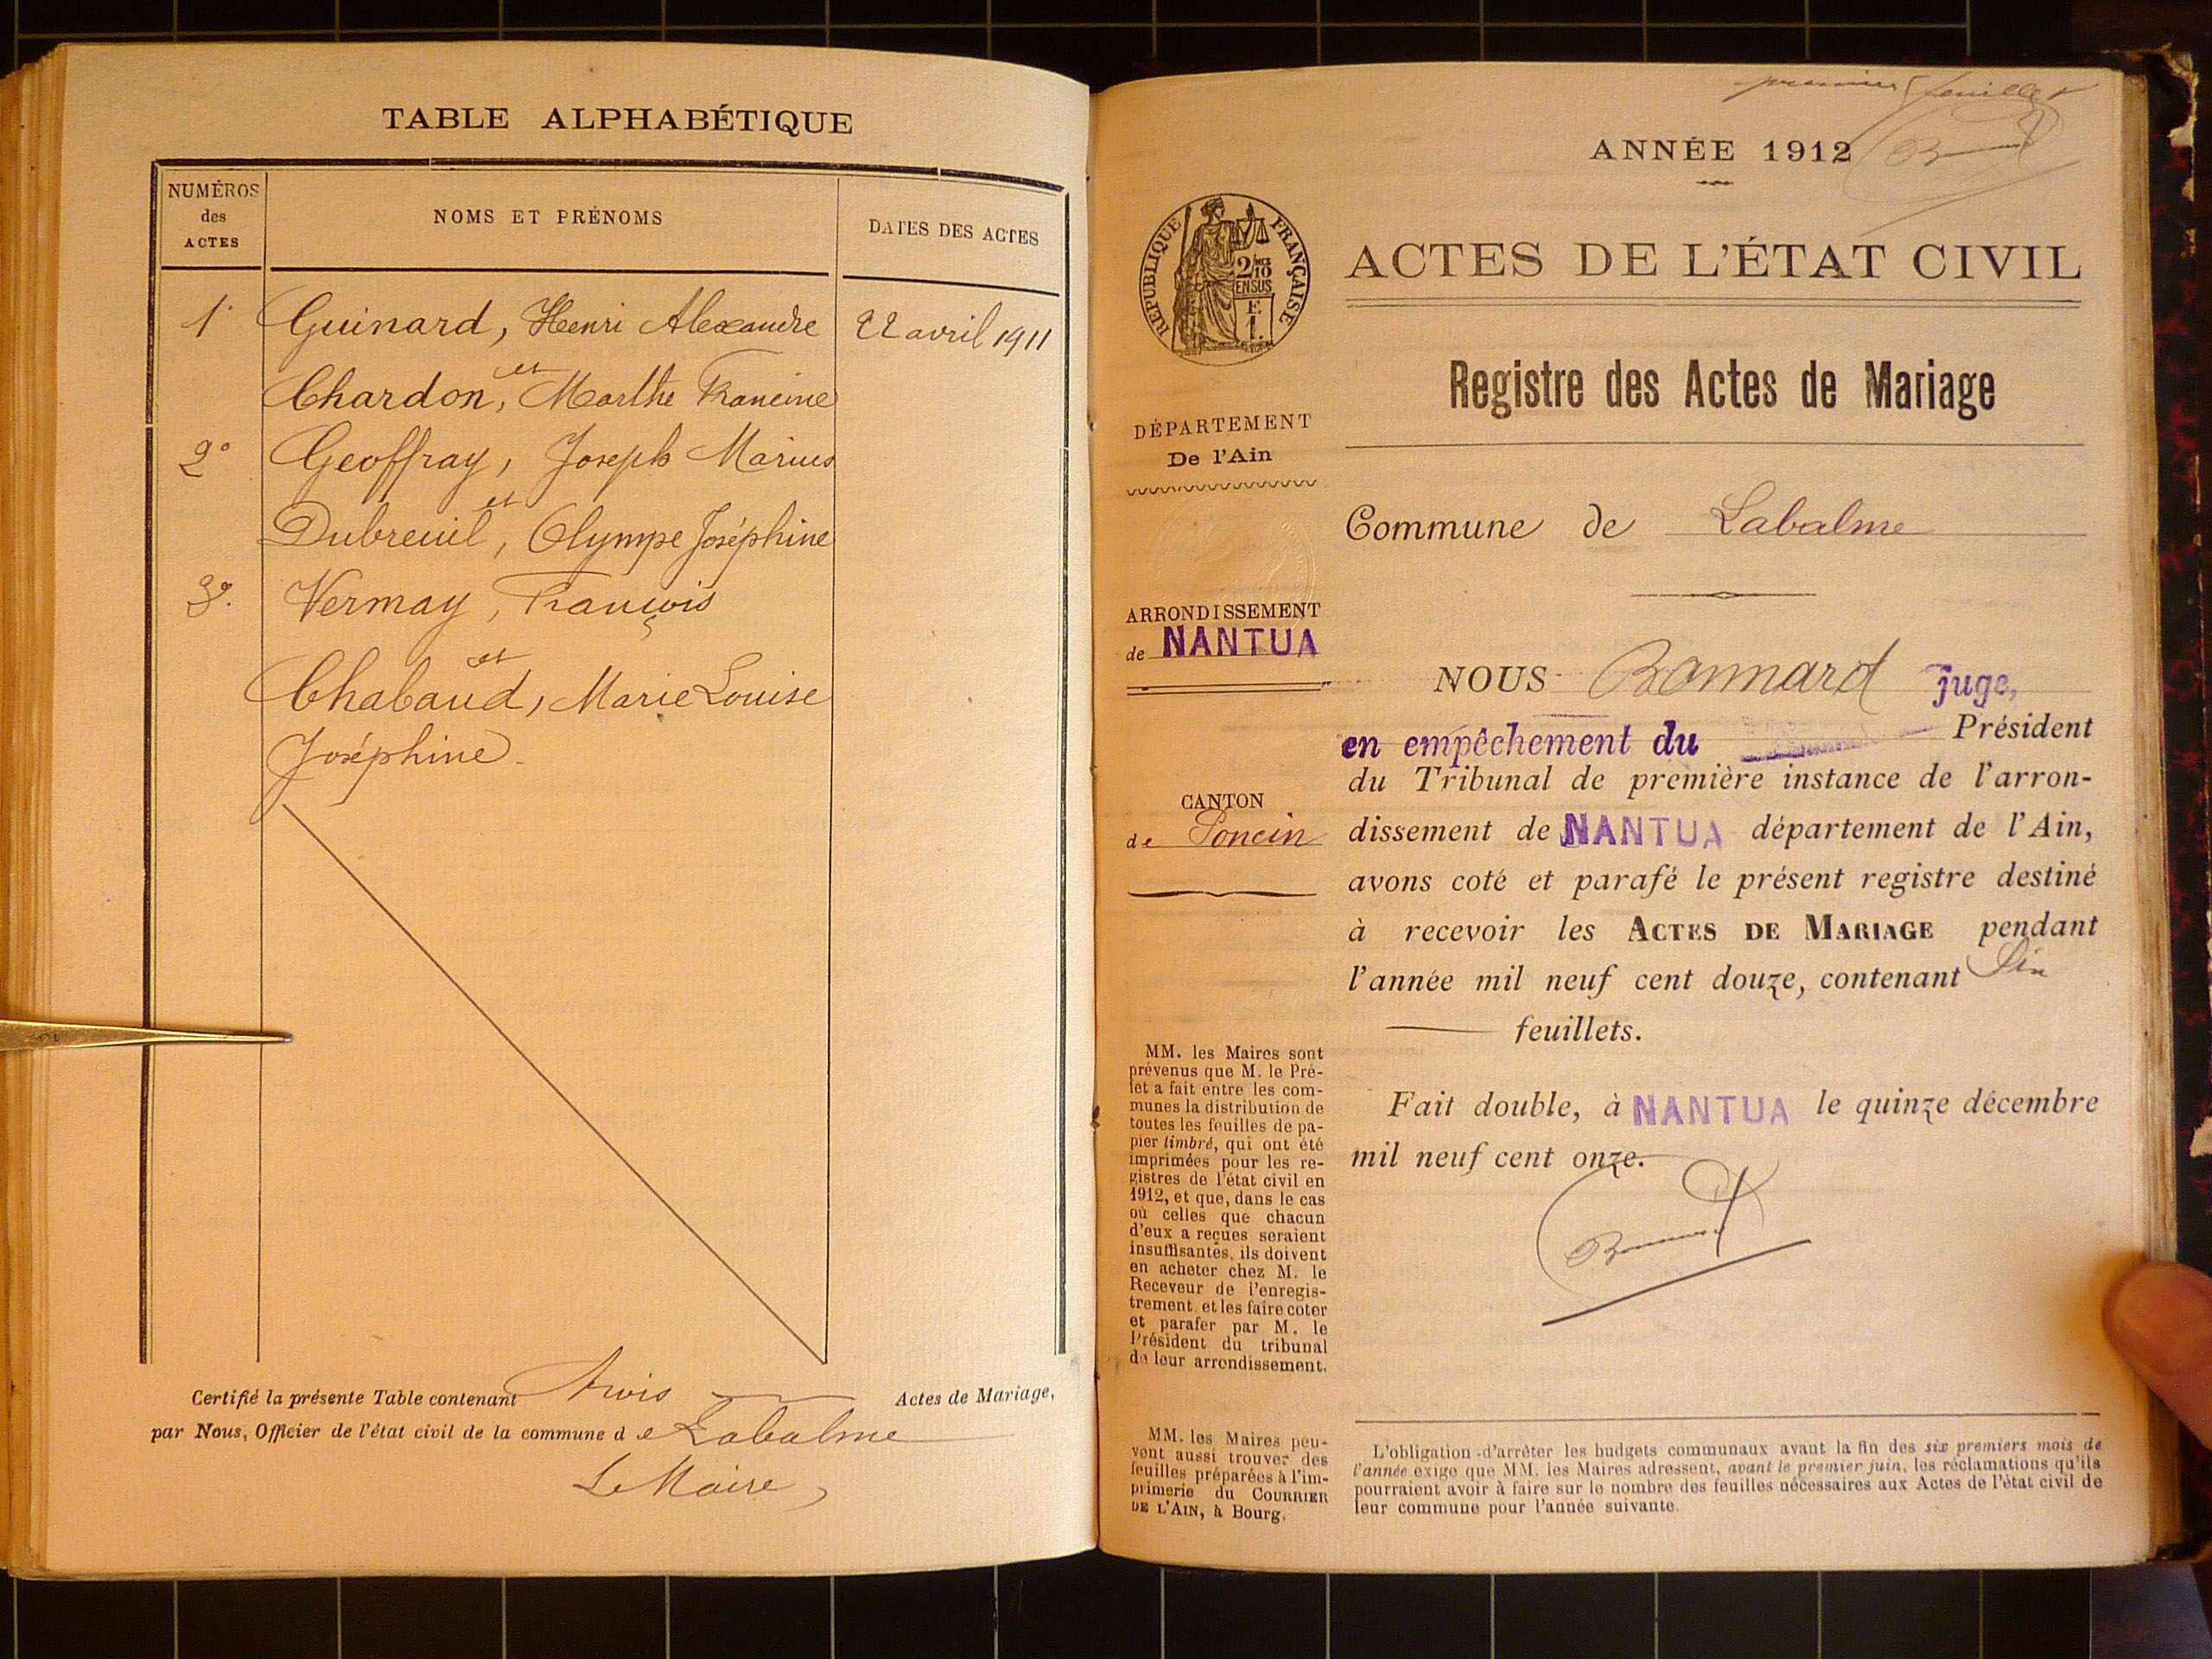 TABLE ALPHABÉTIQUE
NUMÉROS
des
ACTES
NOMS ET PRÉNOMS
DATES DES ACTES
1° Guinard, Henri Alexandre 22 avril 1911
et
Chardon, Marthe Francine
2° Geoffray, Joseph Marius
et
Dubreuil, Olympe Joséphine
3° Vermay, François
et
Chabaud, Marie Louise
Joséphine
Certifié la présente Table contenant trois Actes de Mariage,
par Nous, Officier de l'état civil de la commune de Labalme
Le Maire,
premier feuillet
ANNÉE 1912
RÉPUBLIQUE FRANÇAISE
2/10
EN SUS
E
1.
ACTES DE L'ÉTAT CIVIL
Registre des Actes de Mariage
DÉPARTEMENT
De l'Ain
Commune de Labalme
ARRONDISSEMENT
de NANTUA
CANTON
de Poncin
NOUS Bonnard juge,
en empêchement du Président
du Tribunal de première instance de l'arron-
dissement de NANTUA département de l'Ain,
avons coté et parafé le présent registre destiné
à recevoir les ACTES DE MARIAGE pendant
l'année mil neuf cent douze, contenant
feuillets.
Fait double, à NANTUA le quinze décembre
mil neuf cent onze.
MM. les Maires sont
prévenus que M. le Pré-
fet a fait entre les com-
munes la distribution de
toutes les feuilles de pa-
pier timbré, qui ont été
imprimées pour les re-
gistres de l'état civil en
1912, et que, dans le cas
où celles que chacun
d'eux a reçues seraient
insuffisantes, ils doivent
en acheter chez M. le
Receveur de l'enregis-
trement, et les faire coter
et parafer par M. le
Président du tribunal
de leur arrondissement.
MM. les Maires peu-
vent aussi trouver des
feuilles préparées à l'im-
primerie du COURRIER
DE L'AIN, à Bourg.
L'obligation d'arrêter les budgets communaux avant la fin des six premiers mois de
l'année exige que MM. les Maires adressent, avant le premier juin, les réclamations qu'ils
pourraient avoir à faire sur le nombre des feuilles nécessaires aux Actes de l'état civil de
leur commune pour l'année suivante.